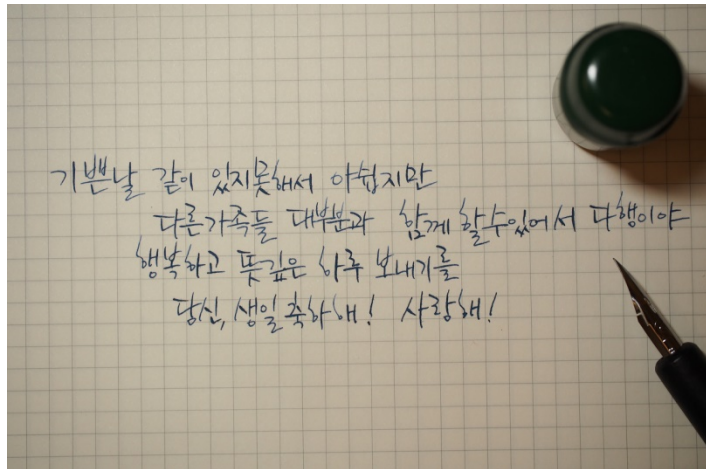 기쁜날 같이 있지못해서 아쉽지만
다른가족들 대부분과 함께 할수있어서 다행이야
행복하고 뜻깊은 하루 보내기를
당신, 생일축하해! 사랑해!